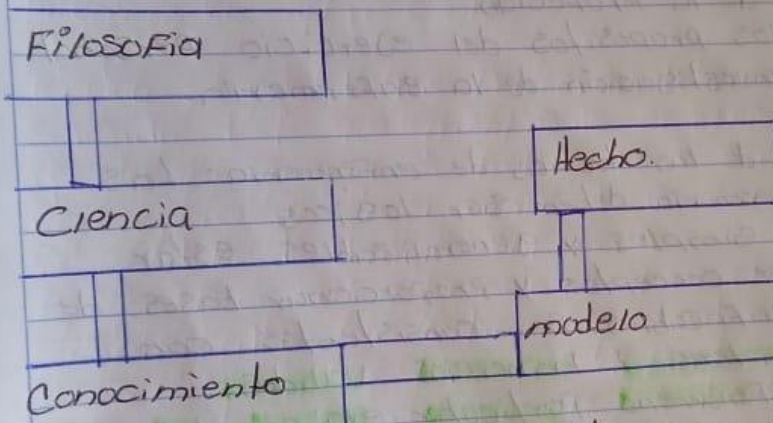 Filosofia
Ciencia
Conocimiento
Hecho.
modelo